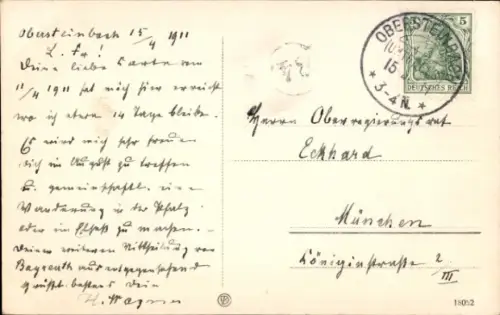 Obersteinbach 15/4 1911
L. Fr!
Deine liebe Carte vom
11/4 1911 hat mich hier erreicht
wo ich etwa 14 Tage bleibe.
Es wird mich sehr freuen
dich im August zu treffen
u. gemeinschaftl. eine
Wanderung in der Pfalz
oder im Elsaß zu machen.
Deinen weiteren Mittheilung von
Bayreuth aus entgegensehend
grüßt bestens Dein
H. Wagner
OBERSTEINBACH
15
* 3-4 N. *
5
DEUTSCHES REICH
Herrn Oberregierungsrat
Eckhard
München
Königinstraße 2/III
18092